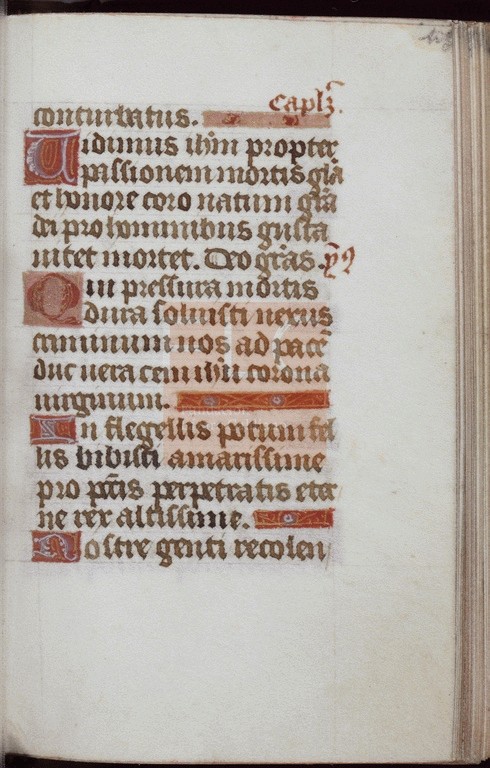 conturbatus. Caplz.
Uidimus ihm propter
passionem mortis gla
et honore coro natum gra
di pro hominibus gusta
uitet mortet. Deo gras. ym9
Qui pressura mortis
dura soluisti nexus
caminum nos ad pace
duc uera cem ihu corona
uirginum.
In flegellis potum fel
lis bibisti amarissime
pro pctis perpetratis eter
ne rex altissime.
Nostre genti recolen